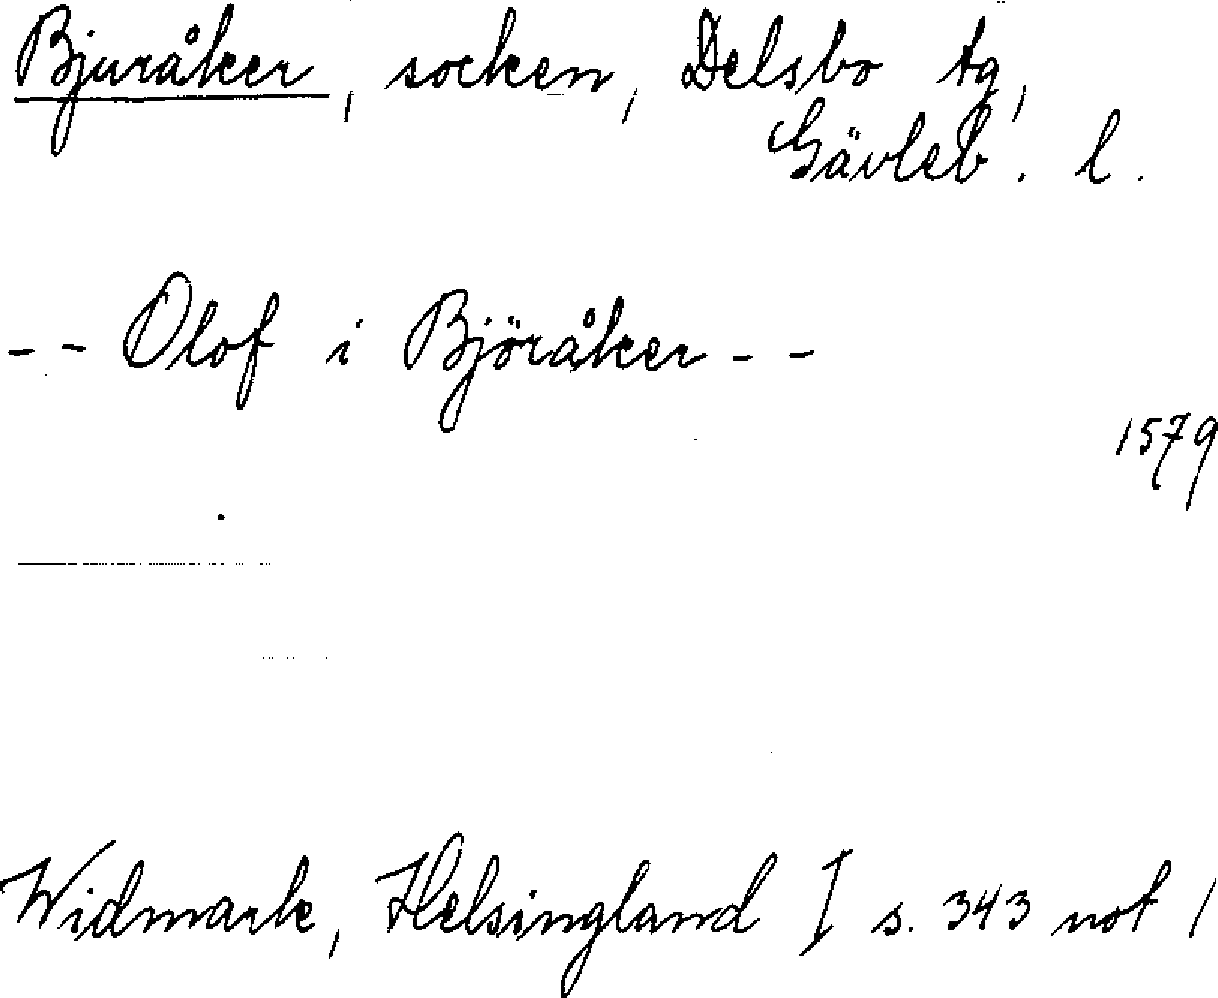 Bjuråker, socken, Delsbo tg,
Gävleb. l.
-- Olof i Björåker --
1579
Widmark, Helsingland I s. 343 not 1